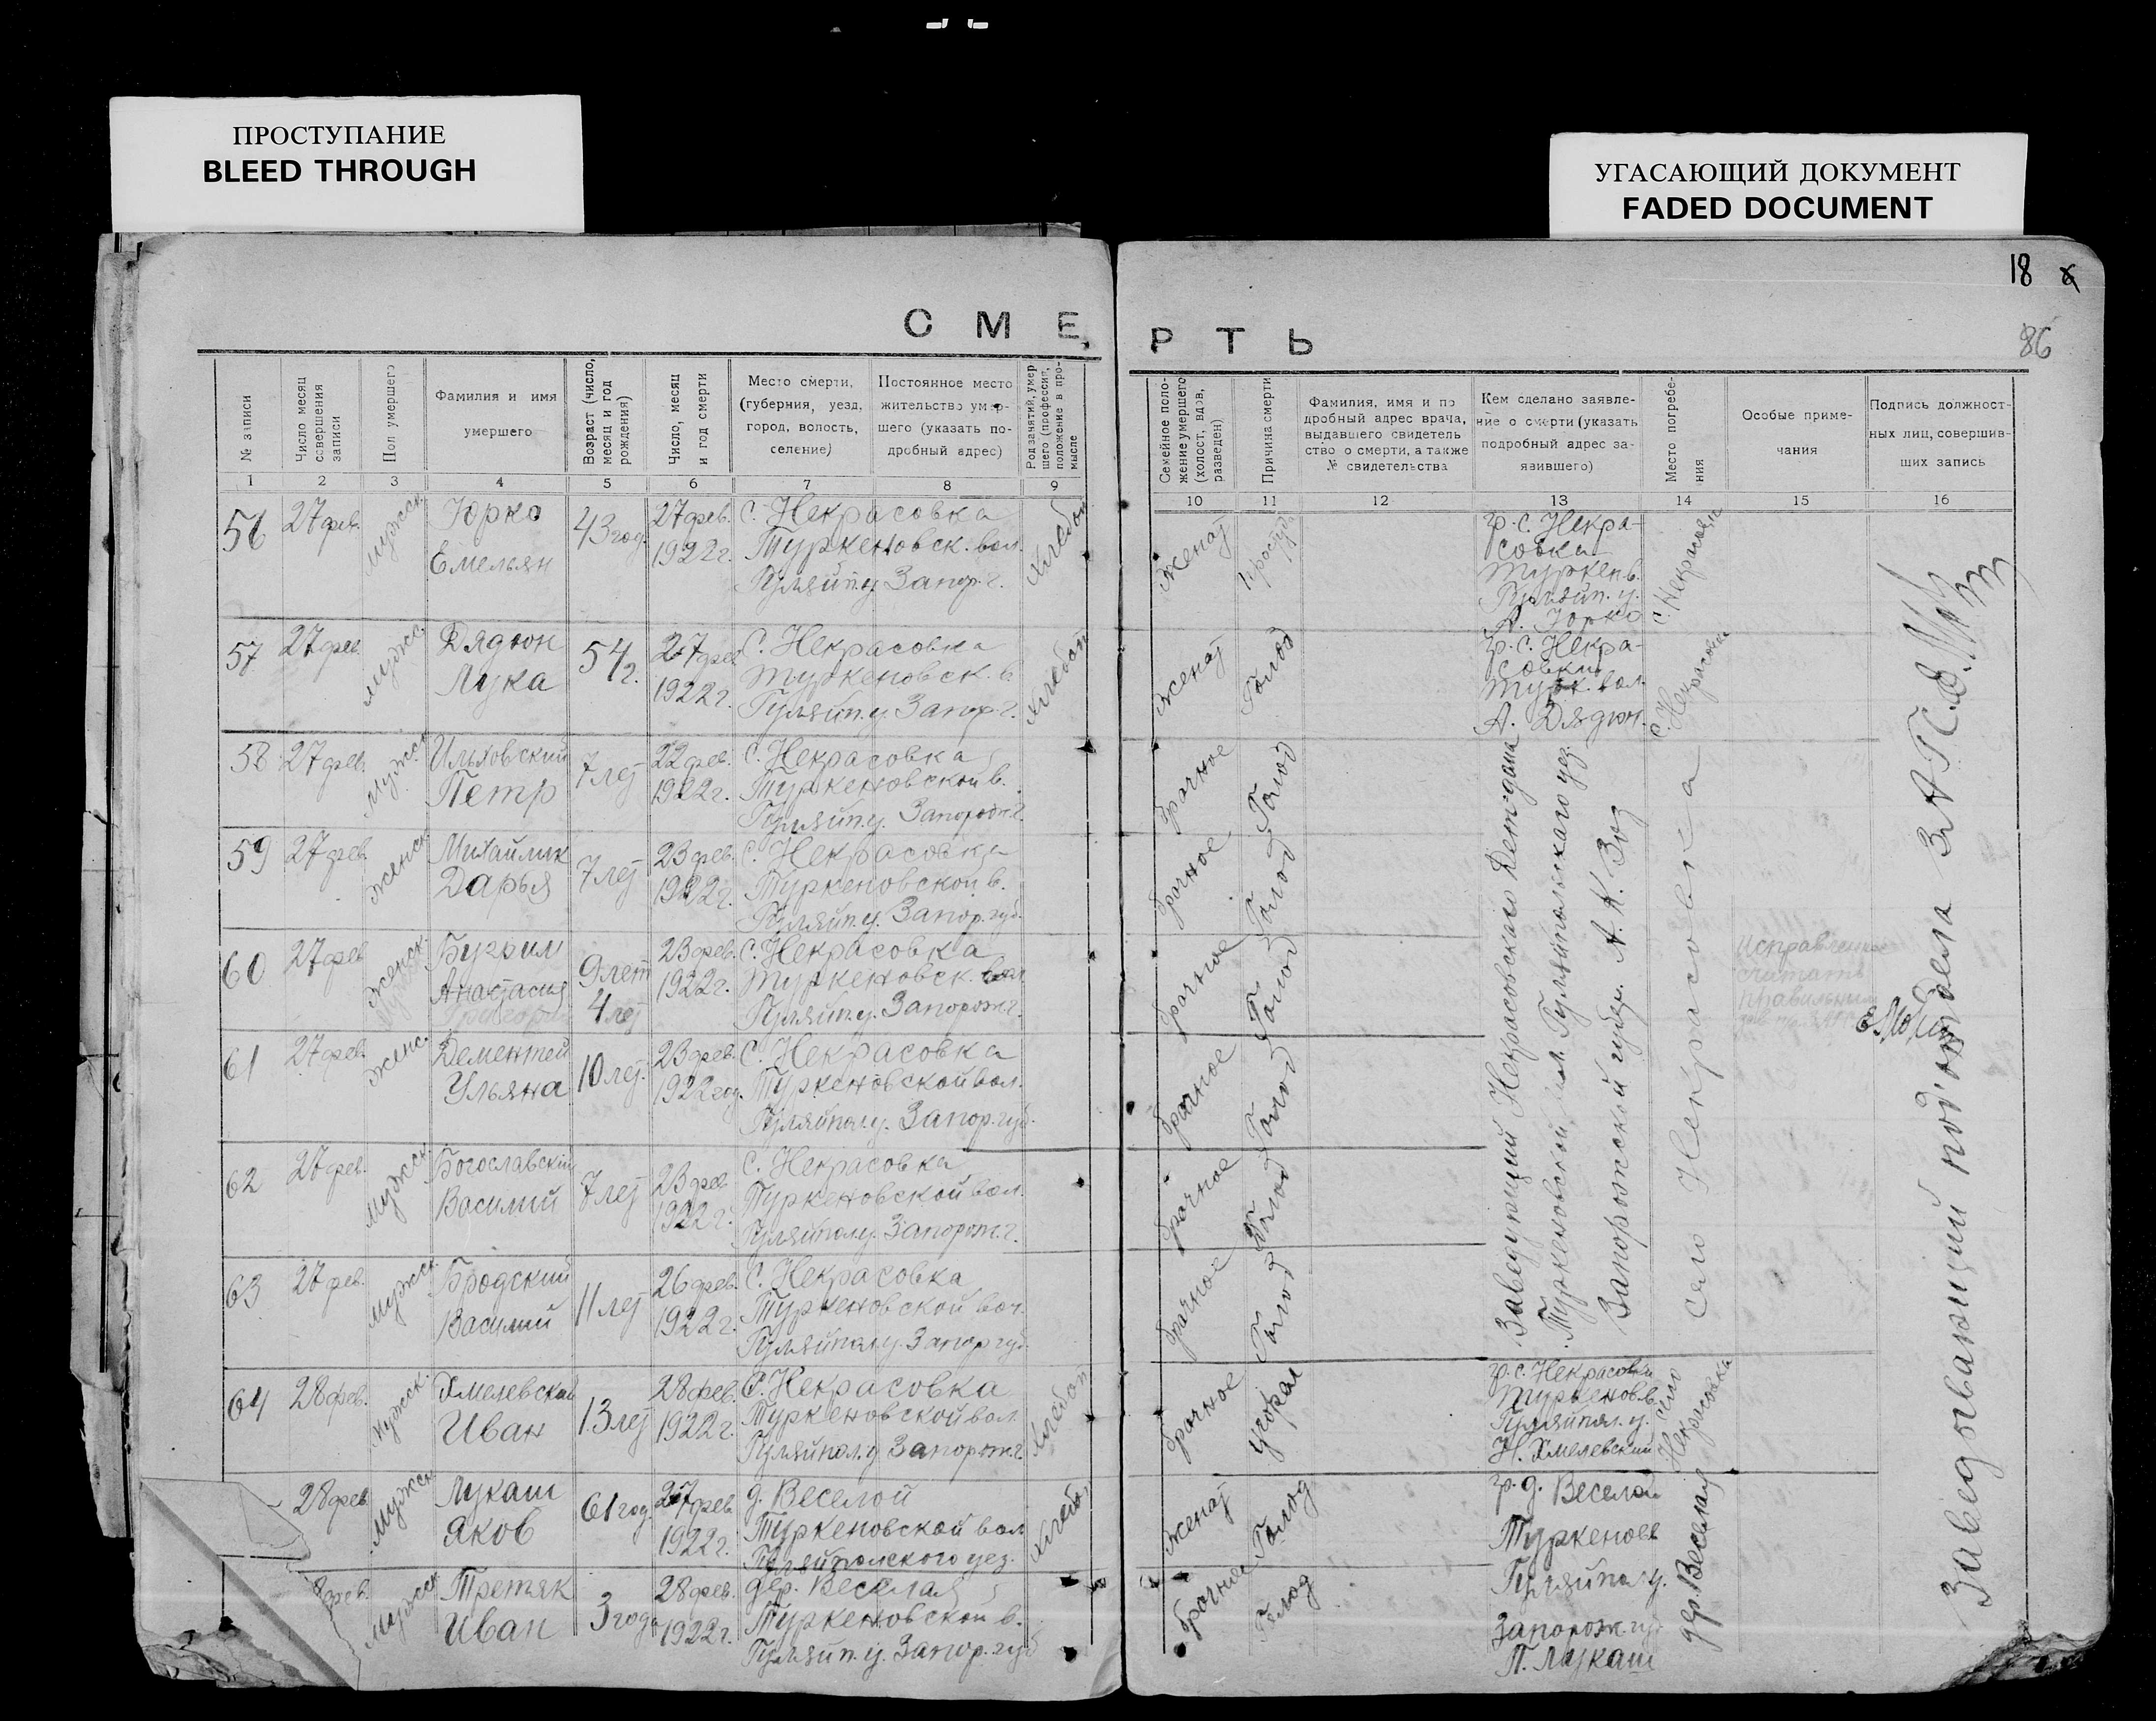 ПРОСТУПАНИЕ
BLEED THROUGH
УГАСАЮЩИЙ ДОКУМЕНТ
FADED DOCUMENT
18
86
СМЕРТЬ
№ записи
Число месяц совершения записи
Пол умершего
Фамилия и имя
умершего
Возраст (число, месяц и год рождения)
Число, месяц и год смерти
Место смерти,
(губерния, уезд,
город, волость,
селение)
Постоянное место
жительство умер-
шего (указать по-
дробный адрес)
Род занятий, умер
шего (профессия,
положение в про-
мысле
Семейное поло-
жение умершего
(холост, вдов,
разведен)
Причина смерти
Фамилия, имя и по
дробный адрес врача,
выдавшего свидетель
ство о смерти, а также
№ свидетельства
Кем сделано заявле-
ние о смерти (указать
подробный адрес за-
явившего)
Место погребе-
ния
Особые приме-
чания
Подпись должност-
ных лиц, совершив-
ших запись
1 2 3 4 5 6 7 8 9 10 11 12 13 14 15 16
56
27 фев.
мужск.
Юрко
Емельян
43 год.
27 фев.
1922 г.
С. Некрасовка
Туркеновск. вол.
Гуляйп. у. Запор. г.
Хлебоп
женат
гр. с. Некра-
совка
Туркен в.
Гуляйп. у.
Юрко
с. Некрасовка
57
27 фев.
мужск.
Дядюн
Лука
54 г.
27 фев.
1922 г.
С. Некрасовка
Туркеновск. в
Гуляйп. у. Запор. г.
Хлебоп
женат
Голод
гр. с. Некра-
совки
Турк. вол.
А. Дядюн.
с. Некрасовка
58
27 фев.
Мужск
Ильховский
Петр
7 лет
22 фев.
1922 г.
С. Некрасовка
Туркеновской в.
Гуляйп. у. Запорож. г.
брачное
Голод
59
27 фев.
женск.
Михайлик
Дарья
7 лет
23 фев.
1922 г.
С. Некрасовка
Туркеновской в.
Гуляйп. у. Запор. губ.
брачное
Голод
60
27 фев
женск.
Бугрим
Анастасия
Григорий
9 лет
4 лет
23 фев.
1922 г.
С. Некрасовка
Туркеновск. вол
Гуляйп. у. Запорож. г.
брачное
Голод
Исправленное
считать
правильным
61
27 фев.
женс.
Дементей
Ульяна
10 лет.
23 фев.
1922 год.
С. Некрасовка
Туркеновской вол.
Гуляйпол. у. Запор. губ.
брачное
Голод
62
27 фев.
Мужск.
Богославский
Василий
7 лет
23 фев
1922 г.
С. Некрасовка
Туркеновской вол.
Гуляйпол. у. Запорож. г.
брачное
Голод
63
27 фев.
Мужск.
Бродский
Василий
11 лет
26 фев.
1922 г.
С. Некрасовка
Туркеновской вол.
Гуляйпол. у. Запор губ.
брачное
Голод
Заведующий Некрасовского Детдома
Туркеновской вол. Гуляйпольскаго уез.
Запорожской губер. А. К.
село Некрасовка
64
28 фев.
Мужск.
Хмелевский
Иван
13 лет
28 фев.
1922 г.
С. Некрасовка
Туркеновской вол.
Гуляйпол. у Запорож. г.
Хлебоп
брачное
угорал
гр. с. Некрасовки
Туркенов. в.
Гуляйпол. у.
Н. Хмелевский
село Некрасовка
28 фев.
Мужск
Лукаш
Яков
61 год.
27 фев
1922 г.
д. Веселой
Туркеновской вол
Гуляйпольского уез.
Хлебоп
женат
Голод
гр. д. Веселой
Туркенов
Гуляйпол у.
Запорож. гу
П. Лукаш
дер. Веселая
фев.
Мужск
Третяк
Иван
3 года
28 фев.
1922 г.
дер. Веселая
Туркеновской в.
Гуляйп. у. Запор. губ
брачное
Голод
Заведывающий под'отдела ЗАГС